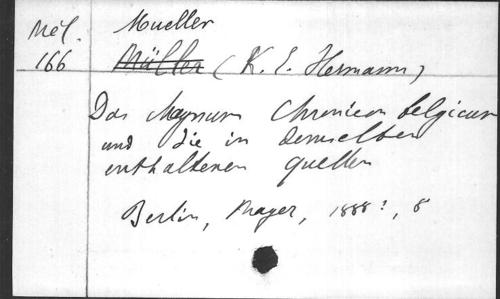 Mél. Mueller
166 Müller (K. E. Hermann)
Das Magnum Chronicon belgicum
und die in demselben
enthaltenen Quellen
Berlin, Mayer, 1888?, 8